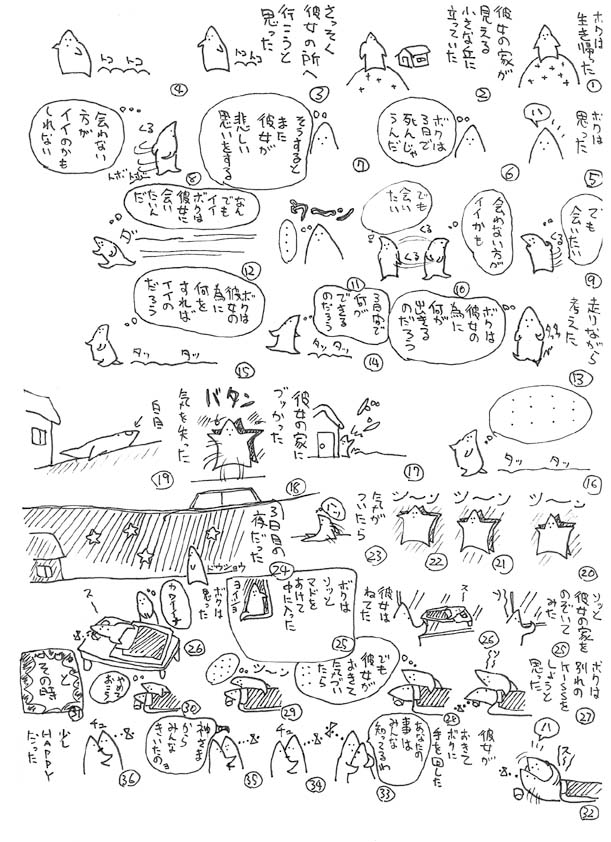 ボクは
生き帰った
①
彼女の家が
見える
小さな丘に
立っていた
②
さっそく
彼女の所へ
行こうと
思った
③
トコトコ
④
トコトコ
ボクは
思った
⑤
ハッ
⑥
ボクは
3日で
死んじゃ
うんだ
⑦
そうすると
また
彼女が
悲しい
思いをする
⑧
会わない
方が
イイのかも
しれない
くる
トボトボ
⑨
でも
会いたい
くる
⑩
会わない方が
イイかも
くる
でも
会い
たい
くる
⑪
ワーーン
⑫
なん
でも
イイ
ボクは
彼女に
会い
たいん
だ
ダー
走りながら
考えた
⑬
タッタッ
ボクは
彼女の
為に
何が
出きる
のだろう
⑭
3日間で
何が
できる
のだろう
タッタッ
⑮
ボクは
彼女の
為に
何を
すれば
イイの
だろう
タッ タッ
⑯
タッ タッ
⑰
彼女の家に
ブツかった
⑱
バタン
気を失った
⑲
白目
⑳
ツ〜ン
㉑
ツ〜ン
㉒
ツ〜ン
㉓
気が
ついたら
㉔
3日目の
夜だった
ドウショウ
ソッと
彼女の家を
のぞいて
みた
㉕
㉖
彼女は
ねてた
スー
㉕
ボクは
ソッと
マドを
あけて
中に入った
ヨイショ
㉖
ボクは
思った
カワイイナ
スー
ボクは
別れの
KISSを
しようと
思った
㉗
㉘
㉙
でも
彼女が
おきて
気づい
たら
ツ〜ン
㉚
やめ
おこう
㉛
と
その時
㉜
ハッ
スー
彼女が
おきて
ボクに
手を回した
㉝
あなたの
事は
みんな
知ってるわ
㉞
㉟
神さま
から
みんな
きいたのョ
チュ
㊱
チュ
少し
HAPPY
だった